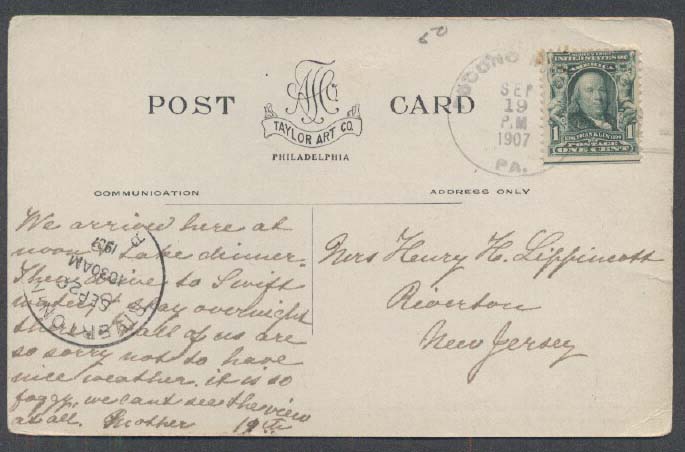 POST CARD
TAYLOR ART CO.
PHILADELPHIA
COMMUNICATION
ADDRESS ONLY
SEP
19
P.M
1907
PA.
UNITED STATES OF
AMERICA
1 FRANKLIN 1
POSTAGE
ONE CENT
We arrived here at
noon take dinner.
Then drive to Swift
water & stay overnight
there all of us are
so sorry not to have
nice weather. it is so
foggy, we cant see the view
at all. Mother 19th
Mrs Henry H. Lippincott
Riverton
New Jersey
RIVERTON
SEP 20
1030AM
1907